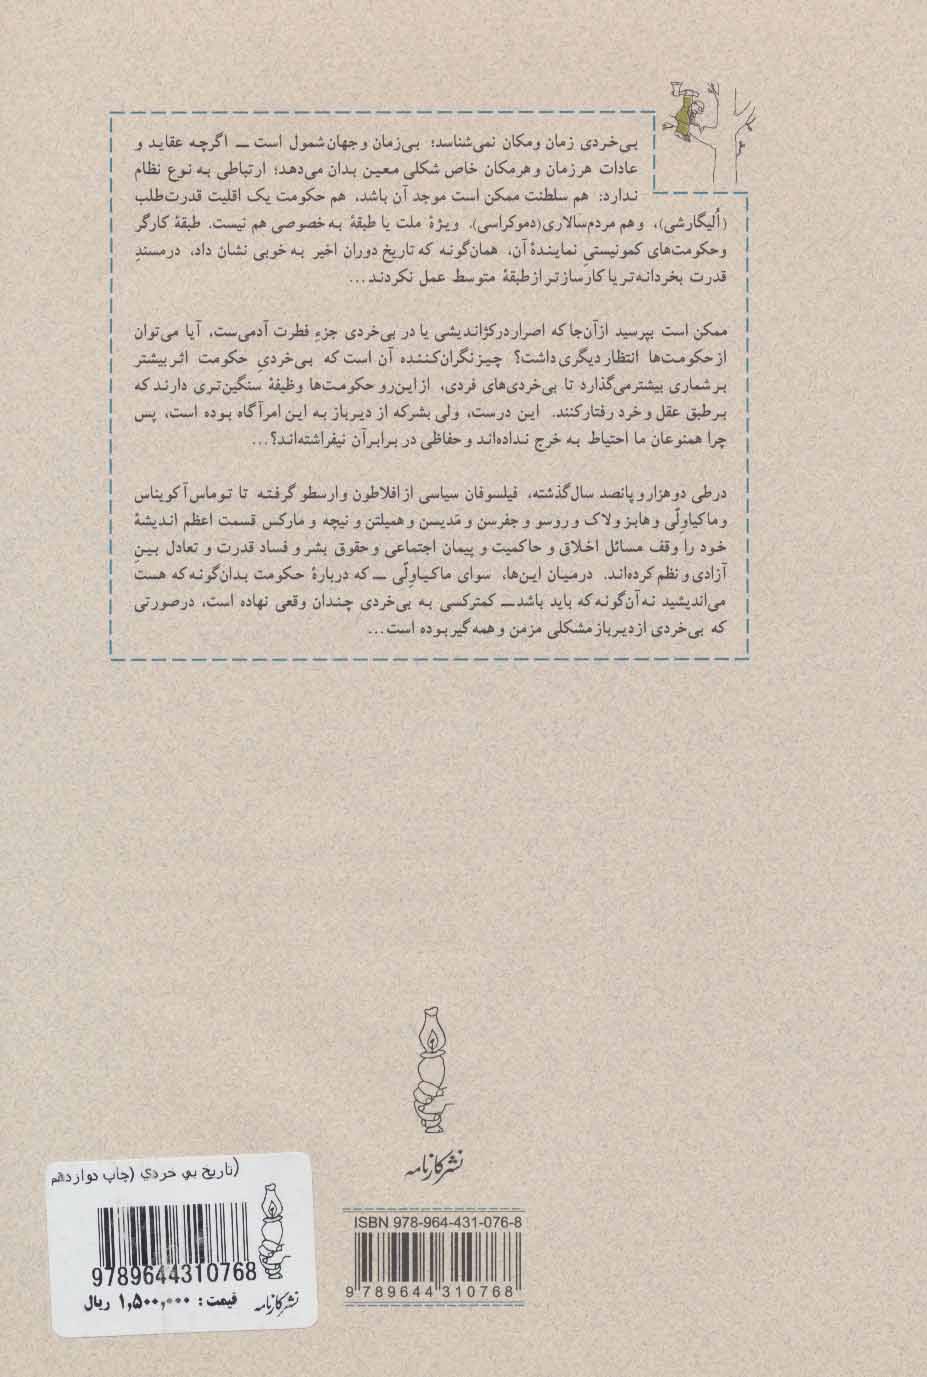 بی‌خردی زمان و مکان نمی‌شناسد؛ بی‌زمان و جهان شمول است ــ اگرچه عقاید و
عادات هر زمان و هر مکان خاص شکلی معین بدان می‌دهد؛ ارتباطی به نوع نظام
ندارد: هم سلطنت ممکن است موجد آن باشد، هم حکومت یک اقلیت قدرت‌طلب
(اُلیگارشی)، و هم مردم‌سالاری (دموکراسی). ویژهٔ ملت یا طبقهٔ به خصوصی هم نیست. طبقهٔ کارگر
و حکومت‌های کمونیستیِ نمایندهٔ آن، همان‌گونه که تاریخ دوران اخیر به خوبی نشان داد، در مسندِ
قدرت بخردانه‌تر یا کارسازتر از طبقهٔ متوسط عمل نکردند...
ممکن است بپرسید از آن‌جا که اصرار در کژاندیشی یا در بی‌خردی جزءِ فطرت آدمی‌ست، آیا می‌توان
از حکومت‌ها انتظار دیگری داشت؟ چیز نگران‌کننده آن است که بی‌خردیِ حکومت اثر بیشتر
بر شماری بیشتر می‌گذارد تا بی‌خردی‌های فردی، از این‌رو حکومت‌ها وظیفهٔ سنگین‌تری دارند که
بر طبق عقل و خرد رفتار کنند. این درست، ولی بشر که از دیرباز به این امر آگاه بوده است، پس
چرا همنوعان ما احتیاط به خرج نداده‌اند و حفاظی در برابر آن نیفراشته‌اند؟...
در طی دو هزار و پانصد سال گذشته، فیلسوفان سیاسی از افلاطون و ارسطو گرفته تا توماس آکویناس
و ماکیاوِلّی و هابز و لاک و روسو و جفرسن و مَدیسن و همیلتن و نیچه و مارکس قسمت اعظم اندیشهٔ
خود را وقف مسائل اخلاق و حاکمیت و پیمان اجتماعی و حقوق بشر و فساد قدرت و تعادل بینِ
آزادی و نظم کرده‌اند. در میان این‌ها، سوای ماکیاوِلّی ــ که دربارهٔ حکومت بدان‌گونه که هست
می‌اندیشید نه آن‌گونه که باید باشد ــ کمتر کسی به بی‌خردی چندان وقعی نهاده است، در صورتی
که بی‌خردی از دیرباز مشکلی مزمن و همه‌گیر بوده است...
نشر کارنامه
ISBN 978-964-431-076-8
9 789644 310768
(تاریخ بی خردی (چاپ دوازدهم
9789644310768
قیمت : ۱,۵۰۰,۰۰۰ ریال
نشر کارنامه